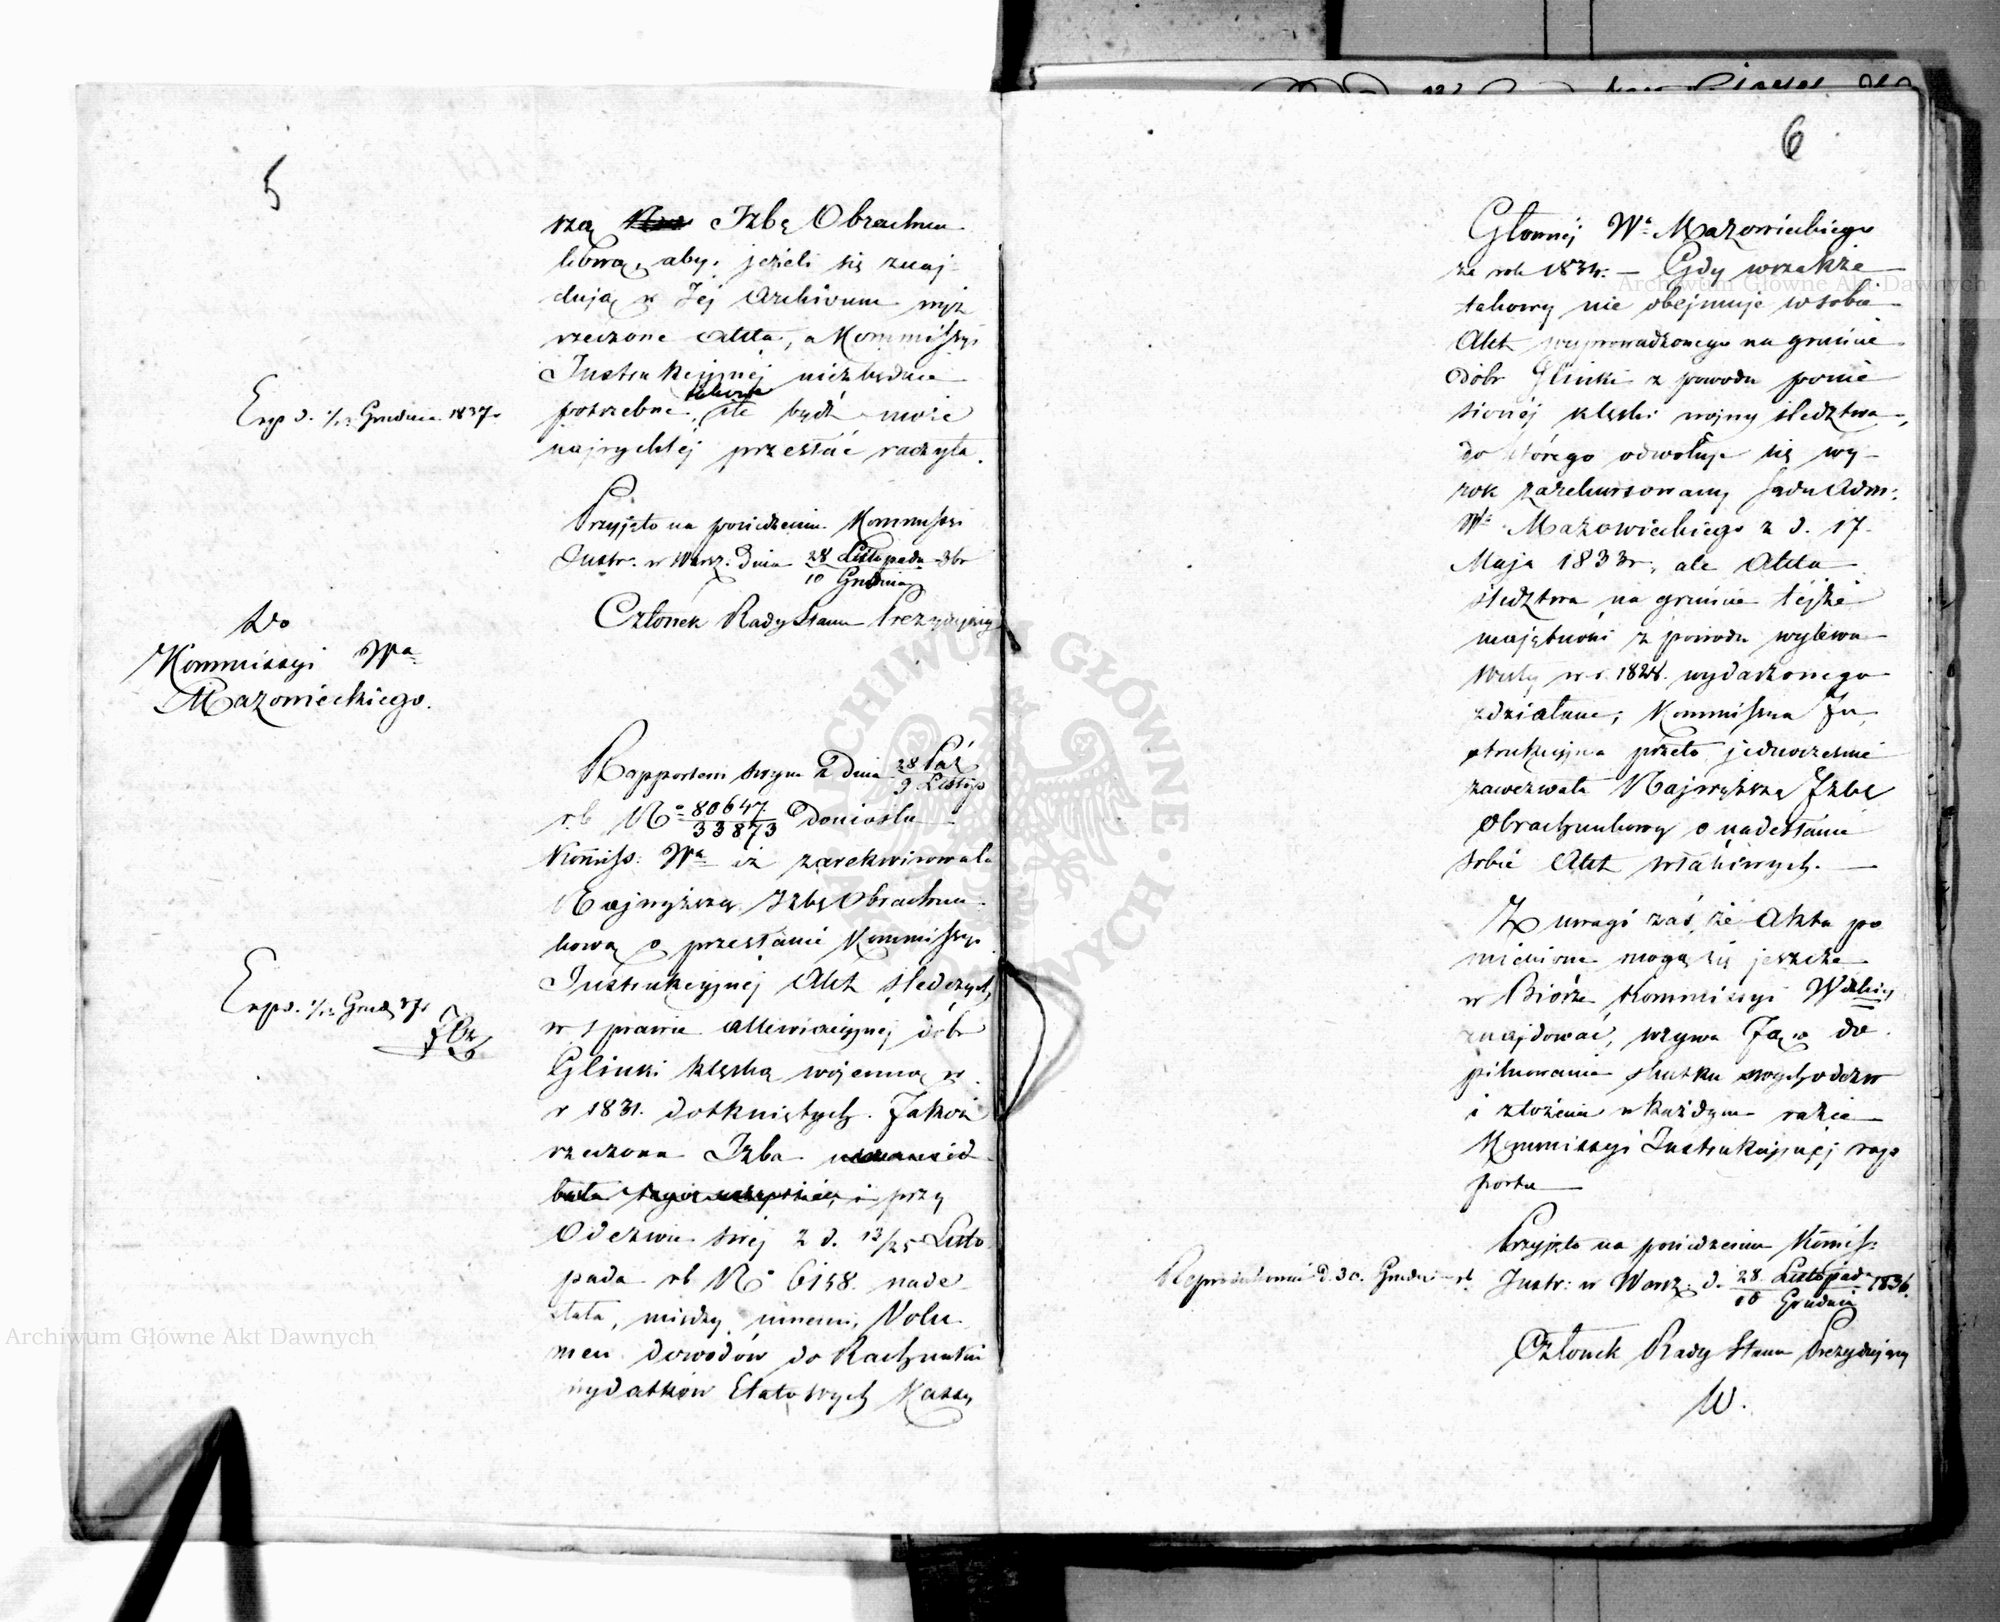 5
rzą Izbę Obrachun
kową, aby, jeżeli się znaj-
dują w Jej Archivum wyż
rzeczone Akta, a Kommissyi
Instrukcyjnej niezbędnie
potrzebne, takowe ile bydź może
najrychléj przesłać raczyła.
Exp d. 1/13 Grudnia 1837.
Przyjęto na posiedzeniu Kommissyi
Instr. w Warsz. dnia 28 Listopada
10 Grudnia
Członek Rady Stanu Prezydujący
Do
Kommissyi Wa
Mazowieckiego.
Rapportem swym z dnia 28 Paź
9 Listop
r.b. No 80647
33873 doniosła
Kommiss: Wa iż zarekwirowała
Najwyższą Izbę Obrachun-
kową o przesłanie Kommissyi
Instrukcyjnej Akt śledczych,
w sprawie allewiacyjnej dóbr
Glinki klęską wojenną w
r 1831. dotkniętych. Jakoż
rzeczona Izba
i przy
Odezwie swej z d. 13/25 Listo
pada rb No 6158. nade-
słała, między innemi, Volu
men dowodów do Rachunku
wydatków Etatowych Kassy
Exped. 1/13 Grud 37
6
Głownéj Wa Mazowieckiego
za rok 1834. — Gdy wszakże
takowy nie obejmuje w sobie
Akt wyprowadzonego na gruncie
dóbr Glinki z powodu ponie
sionéj klęski wojny śledztwa,
do którego odwołuje się wy-
rok zarekursowany Sądu Adm:
Wa Mazowieckiego z d. 17
Maja 1833r, ale Akta
śledztwa na gruncie tejże
majętności z powodu wylewu
Wisły w r. 1828. wydarzonego
zdziałane; Kommissya In
strukcyjna przeto jednocześnie
zawezwała Najwyższą Izbę
Obrachunkową o nadesłanie
sobie Akt właściwych. —
Z uwagi zaś, że Akta po
mienione mogą się jeszcze
w Biórze Kommissyi Wdzkiéj
znajdować, wzywa Ją o do
pilnowanie skutku swych odezw
i złożenie w każdym razie
Kommissyi Instrukcyjnéj rap
portu —
Przyjęto na posiedzeniu Kommiss:
Instr: w Warsz: d. 28 Listopada 1836.
10 Grudnia
d. 30. Grudnia rb.
Członek Rady Stanu Prezydujący
W.
Archiwum Główne Akt Dawnych
Archiwum Główne Akt Dawnych
ARCHIWUM GŁÓWNE AKT DAWNYCH